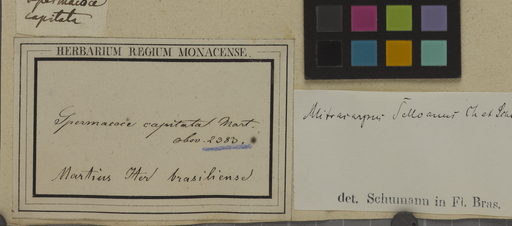 Spermacoce
capitata
HERBARIUM REGIUM MONACENSE.
Spermacoce capitata Mart.
obov. 2383.
Martius Iter brasiliense
Mitracarpus Selloanus Ch et
det. Schumann in Fl. Bras.